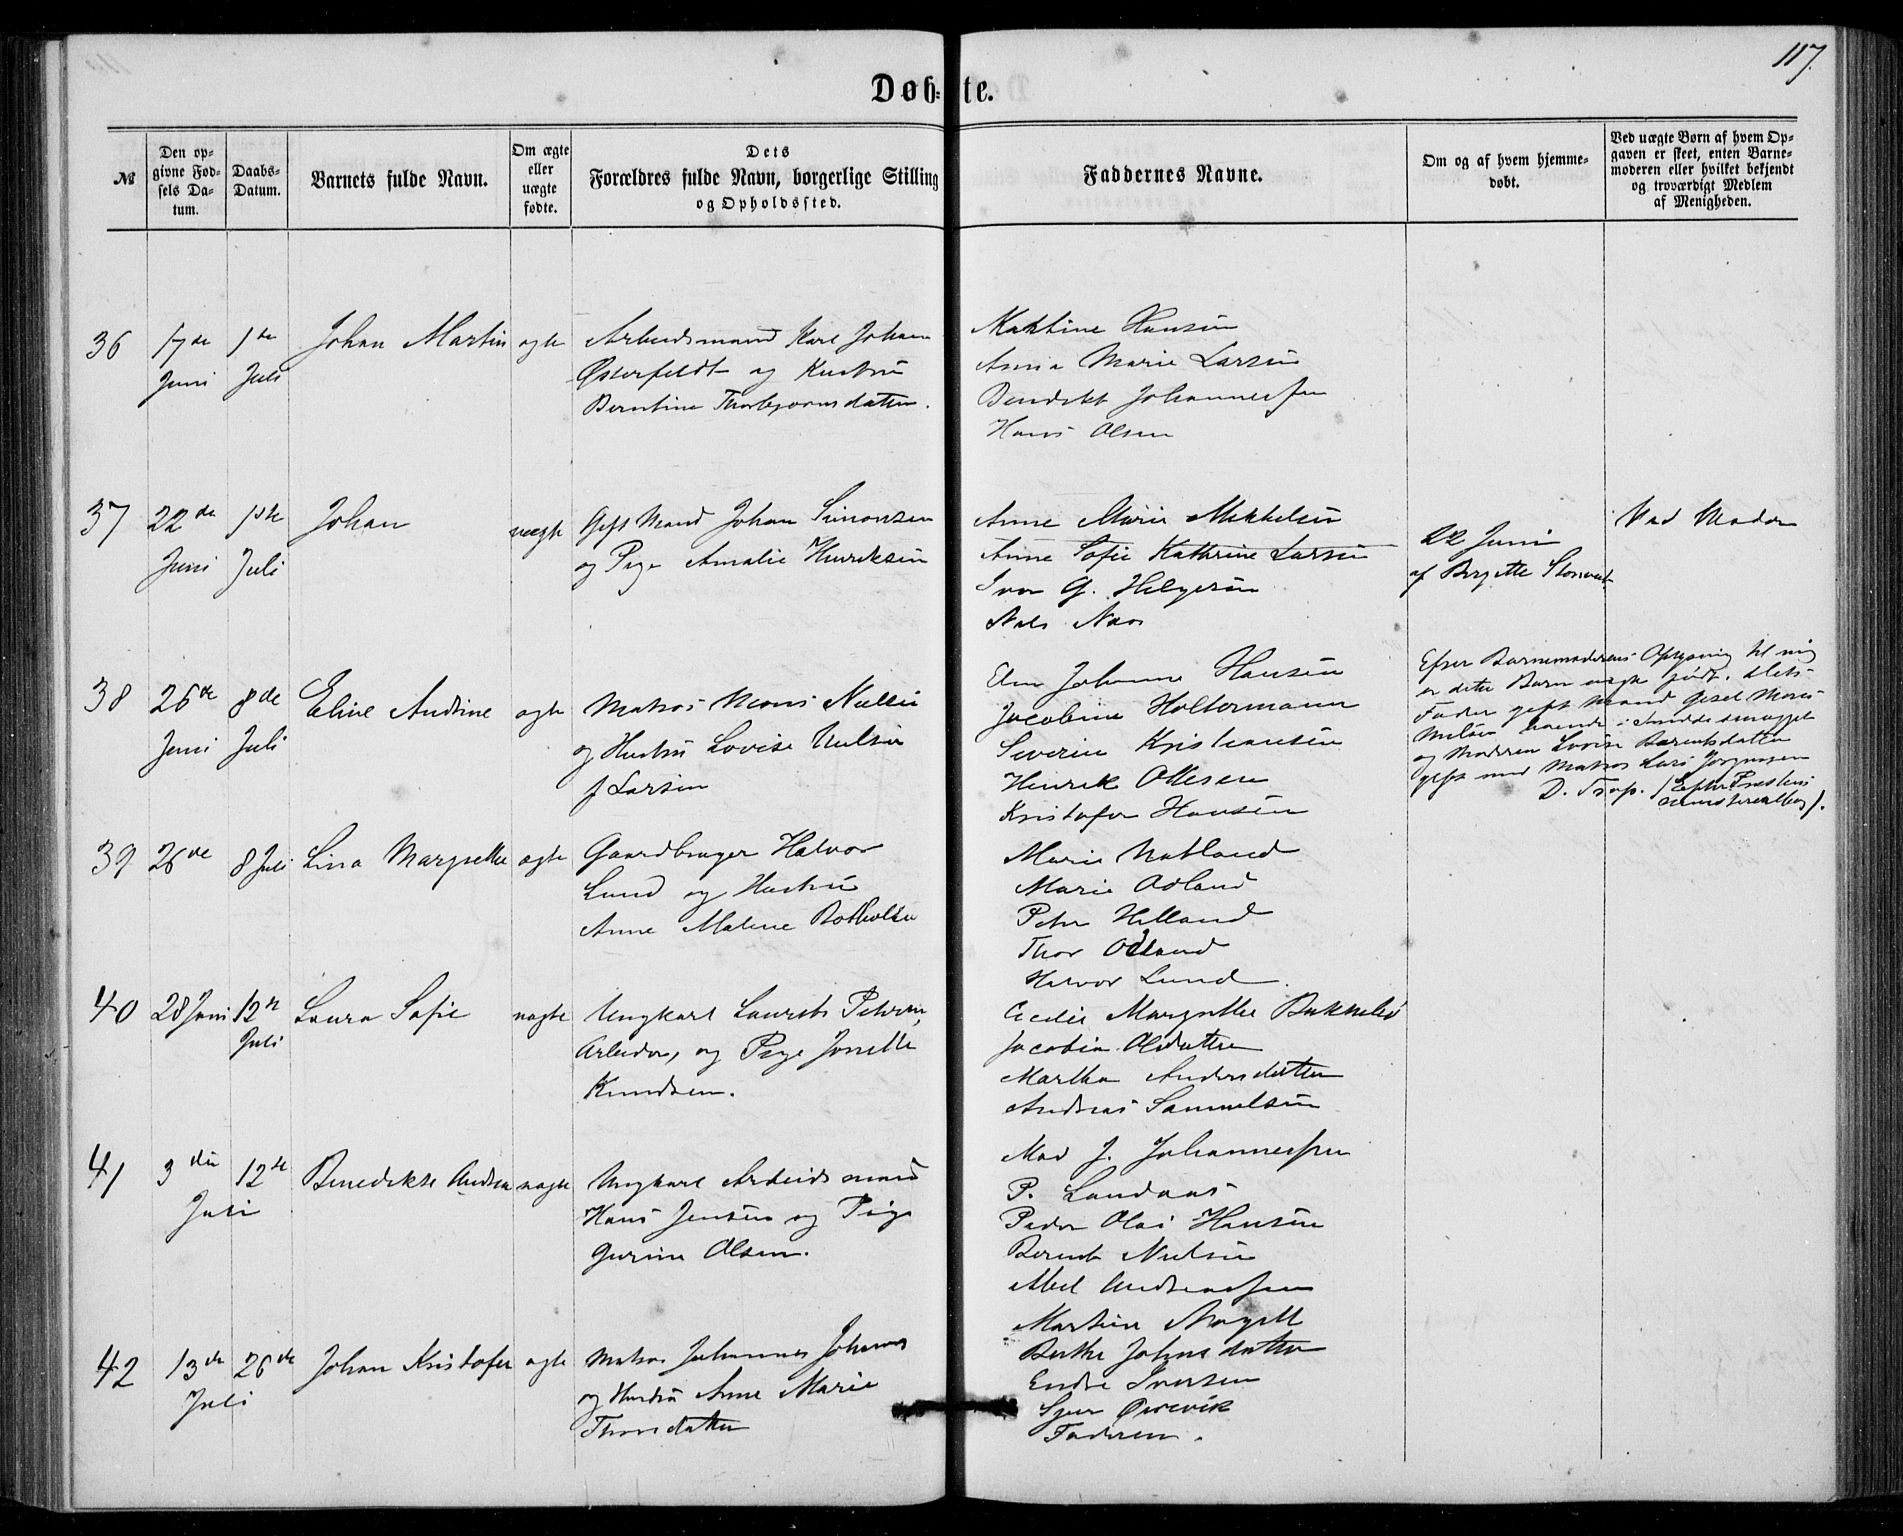 117.
Døb- te.
№
Den op-
givne Fød-
sels Da-
tum.
Daabs-
Datum.
Barnets fulde Navn.
Om ægte
eller
uægte
fødte.
Dets
Forældres fulde Navn, borgerlige Stilling
og Opholdssted.
Faddernes Navne.
Om og af hvem hjemme-
døbt.
Ved uægte Børn af hvem Op-
gaven er skeet, enten Barne-
moderen eller hvilket bekjendt
og troværdigt Medlem
af Menigheden.
36
17de
Juni
1ste
Juli
Johan Martin
ægte
Arbeidsmand Karl Johan
Østerfeldt og Hustru
Berntine Thorbjørnsdatter.
Hansen
Anna Marie Larsen
Bendikt Johannessen
Hans Olsen
37
22de
Juni
1ste
Juli
Johan
uægte
Gift Mand Johan Simonsen
og Pige Amalie Henriksen
Anne Marie Mikkelsen
Anne Sofie Kathrine Larsen
Iver G. Helgesen
Nils
22 Juni
af Birgitte
Ved Moder
38
26de
Juni
8de
Juli
Eline Andrine
ægte
Matros Mons Nielsen
og Hustru Lovise Nielsen
f Larsen
Johanne Hansen
Jacobine Holtermann
Severin Kristiansen
Henrik Ottesen
Kristofer Hansen
Efter Barnemoderens Opgivning til mig
er dette Barn uægte født, dets
Fader gift Mand
Nielsen
og Moderen Lovise Berentsdatter
gift med Matros Lars Jørgensen
D. Trap.
39
26de
8 Juli
Lina Margrethe
ægte
Gaardbruger Halvor
Lund og Hustru
Anne Malene
Marie Natland
Marie Odland
Peter Helland
Thor Odland
Halvor Lund.
40
28 Juni
12te
Juli
Laura Sofie
uægte
Ungkarl Laurits Petersen,
Arbeider, og Pige Jonette
Knudsen.
Cecilie Margrethe
Jacobin. Olsdatter
Martha Andersdatter
Andreas Samuelsen
41
3die
Juli
12te
Benedikte Andrea
uægte
Ungkarl Arbeidsmand
Hans Jensen og Pige
Gurine Olsen.
Mad J. Johannessen
P. Landaas
Peder Olai Hansen
Berent Nielsen
Abel Andreassen
42
13de
Juli
26de
Johan Kristofer
ægte
Matros Johannes
og Hustru Anne Marie
Thorsdatter
Martin
Berthe Johnsdatter
Endre Iversen
Sjur
Faderen.